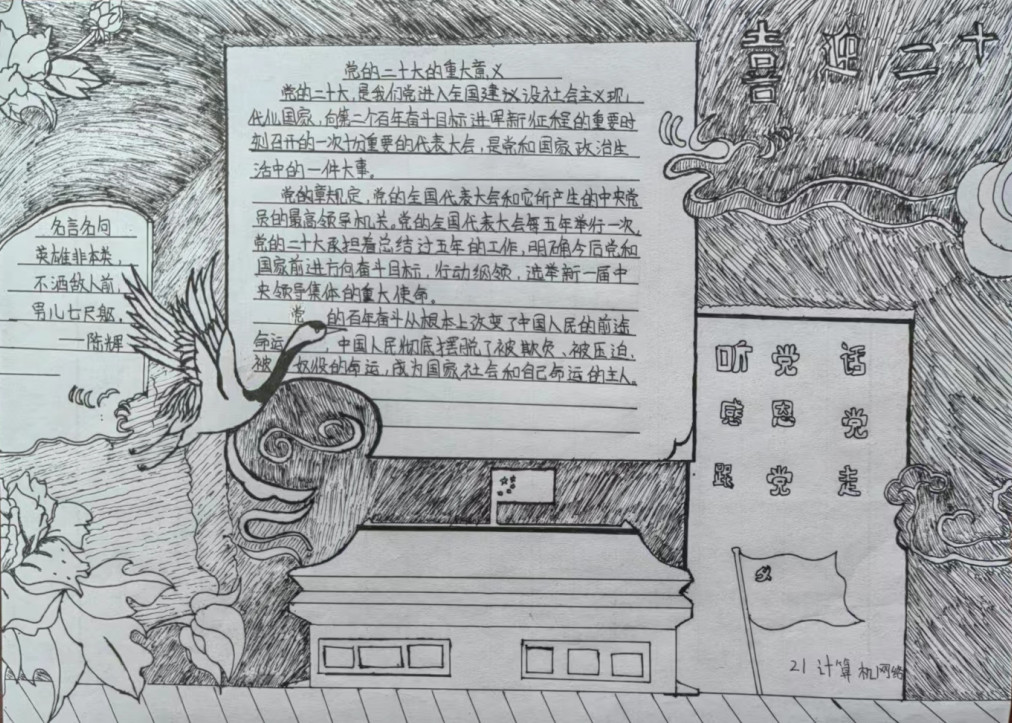 喜迎二十大
党的二十大的重大意义
党的二十大,是我们党进入全国建议设社会主义现
代化国家,向第二个百年奋斗目标进军新征程的重要时
刻召开的一次十分重要的代表大会,是党和国家政治生
活中的一件大事。
党的章规定,党的全国代表大会和它所产生的中央党
员的最高领导机关。党的全国代表大会每五年举行一次,
党的二十大承担着总结过五年的工作,明确今后党和
国家前进方向奋斗目标,行动纲领,选举新一届中
央领导集体的重大使命。
党 的百年奋斗从根本上改变了中国人民的前途
命运 ,中国人民彻底摆脱了被欺负、被压迫、
被 奴役的命运,成为国家社会和自己命运的主人。
名言名句
英雄非本类,
不洒敌人前,
男儿七尺躯,
——陈辉
听党话
感恩党
跟党走
21计算机网络